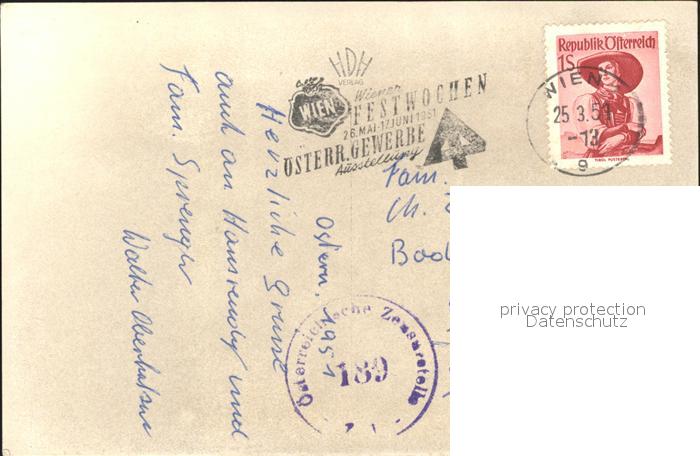 HDH
VERLAG
WIEN
Wiener
FESTWOCHEN
26.MAI-17.JUNI 1951
ÖSTERR.GEWERBE
Ausstellung
Republik Österreich
1S
TIROL PUSTERTAL
WIEN
25 3.51
-13
9
Fam.
Ch.
Bad
Ostern, 1951
Herzliche Grüsse
auch an Hansruedy und
Fam. Sprenger
Walter
Österreichische Zensurstelle
189
privacy protection
Datenschutz